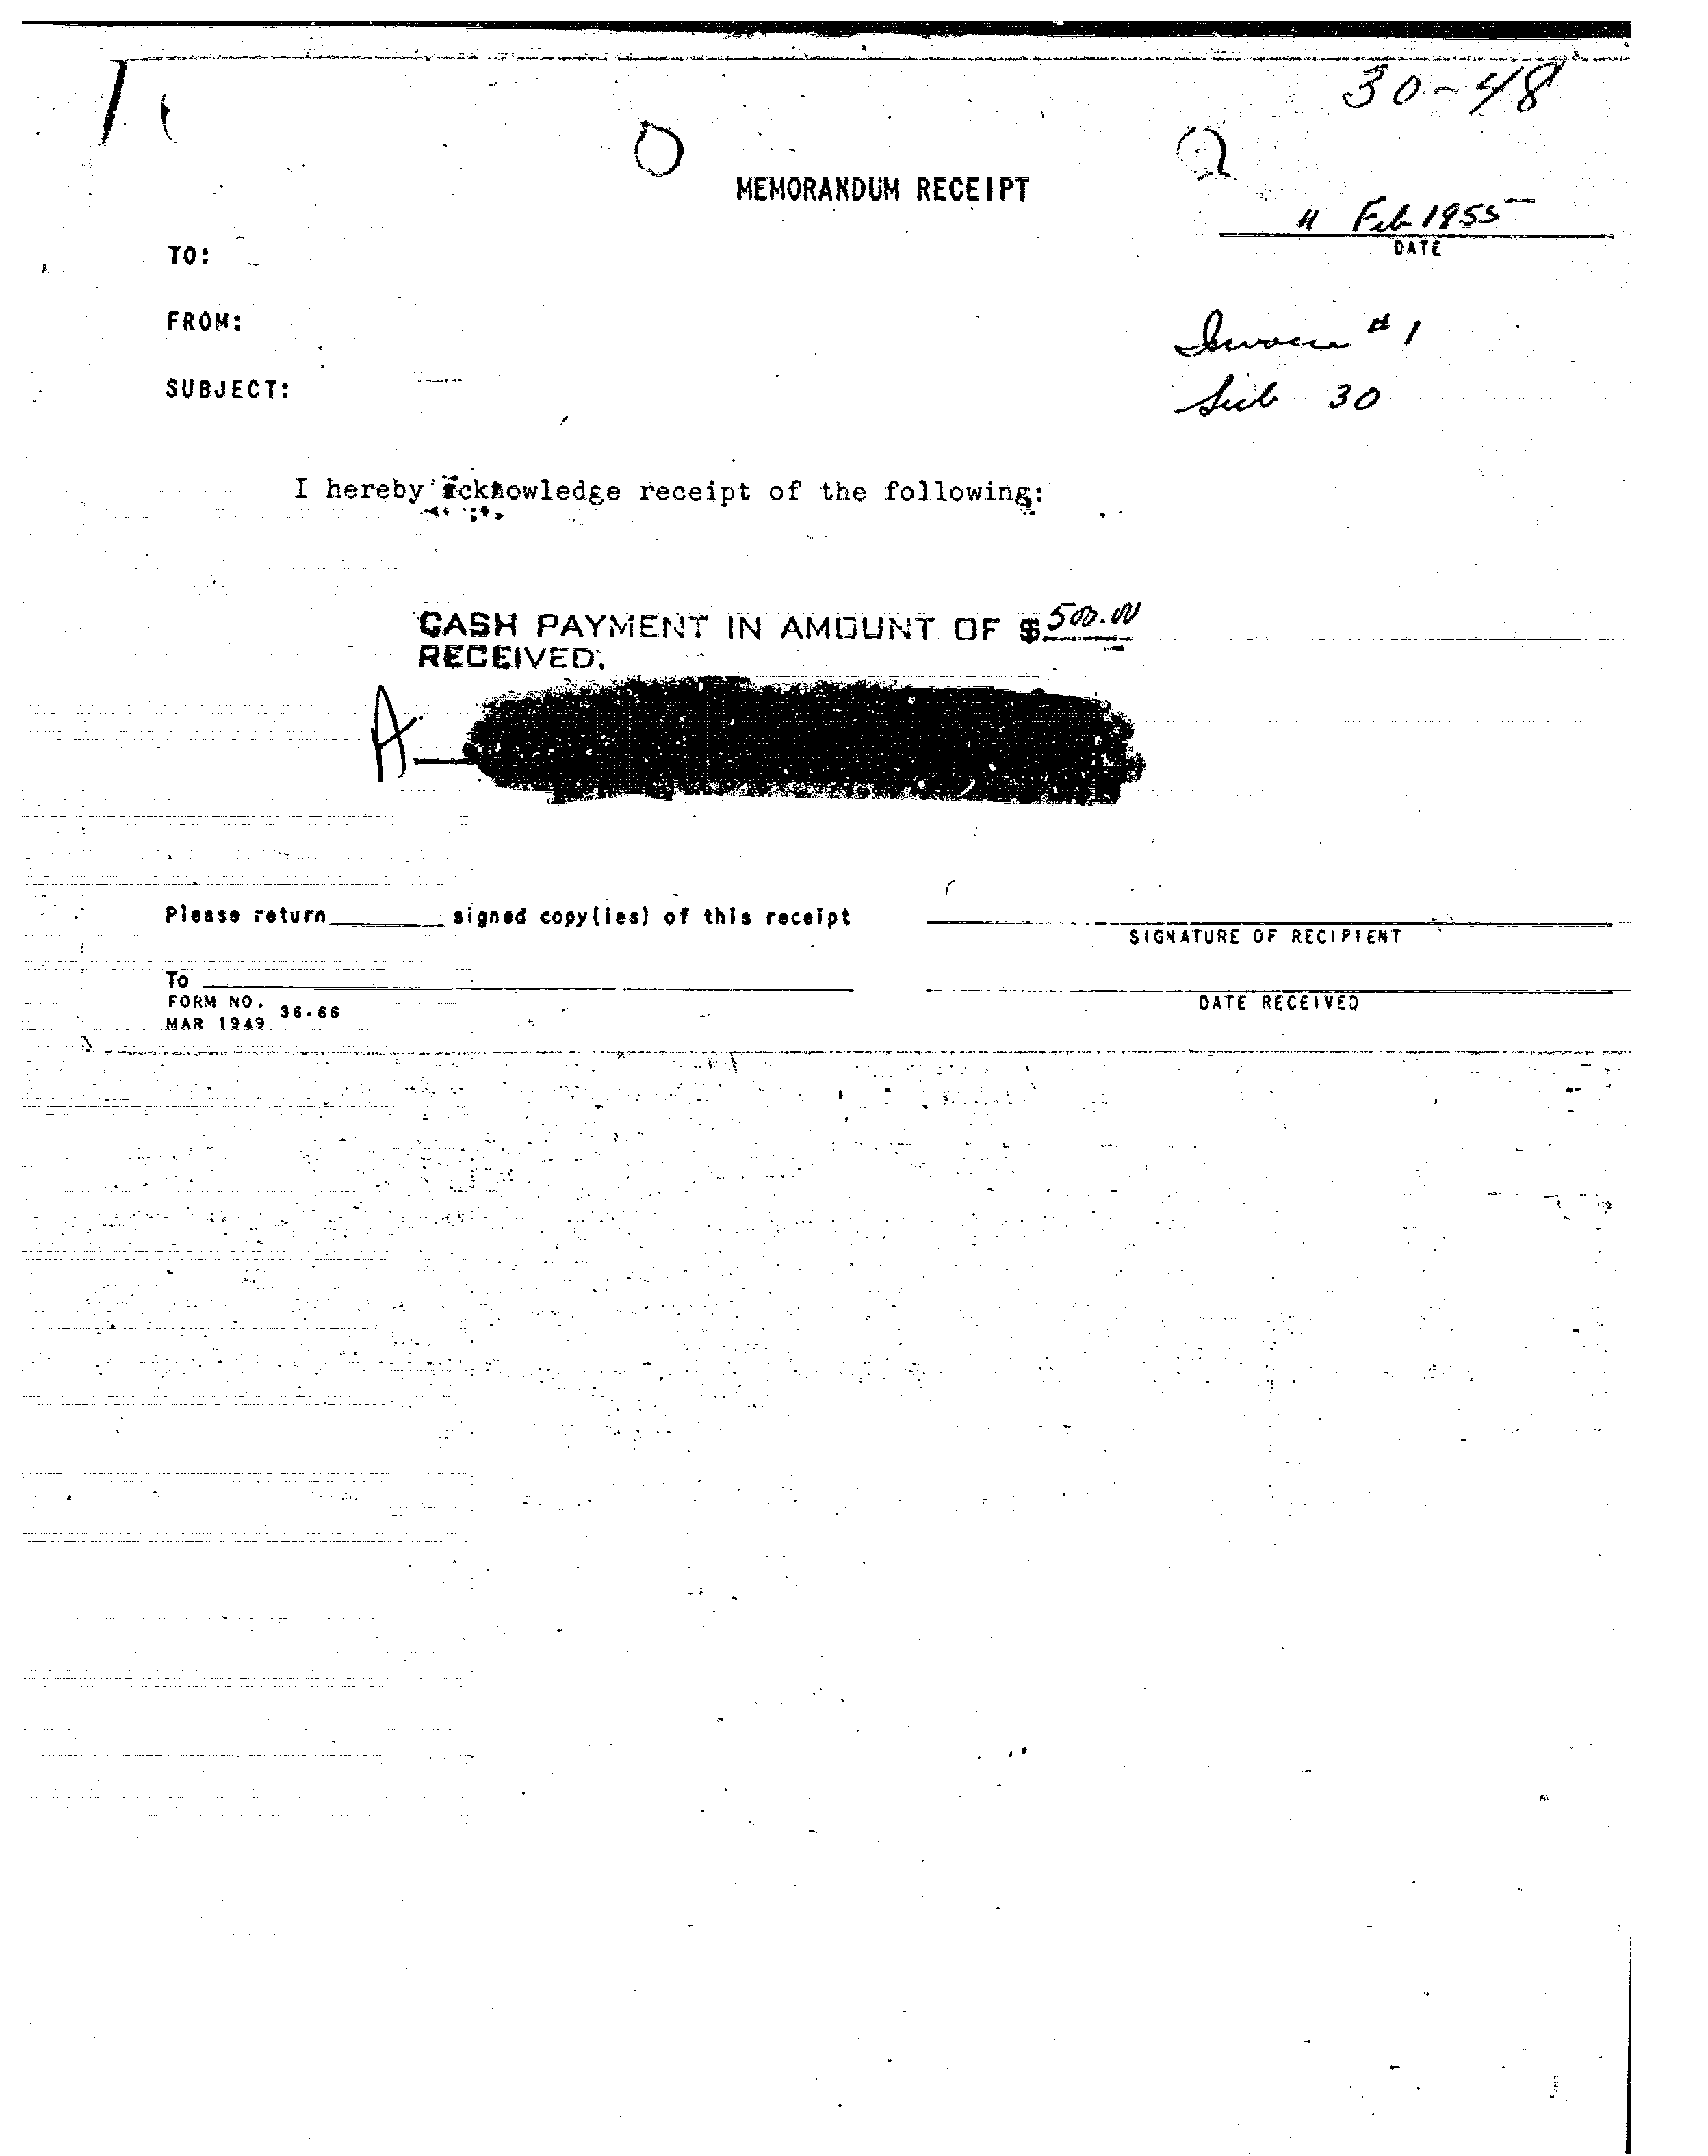 30-48
MEMORANDUM RECEIPT
11 Feb 1955
DATE
TO:
FROM:
Invoice #1
SUBJECT:
Sub 30
I hereby acknowledge receipt of the following:
CASH PAYMENT IN AMOUNT OF $500.00
RECEIVED.
A
Please return ________ signed copy(ies) of this receipt
SIGNATURE OF RECIPIENT
To
DATE RECEIVED
FORM NO. 36-66
MAR 1949